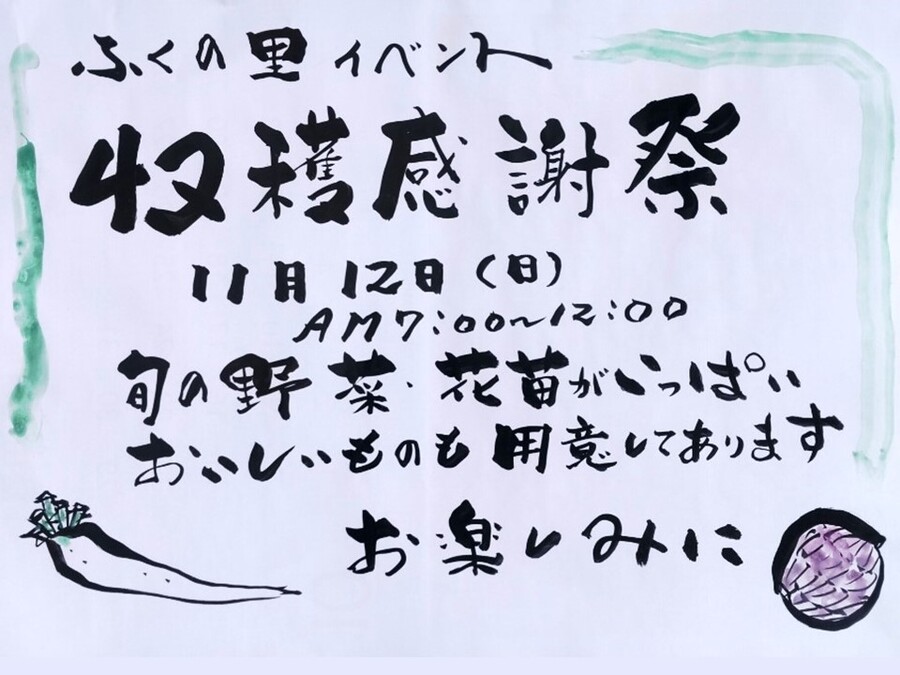 ふくの里 イベント
収穫感謝祭
11月12日(日)
AM7:00~12:00
旬の野菜・花苗がいっぱい
おいしいものも用意してあります
お楽しみに